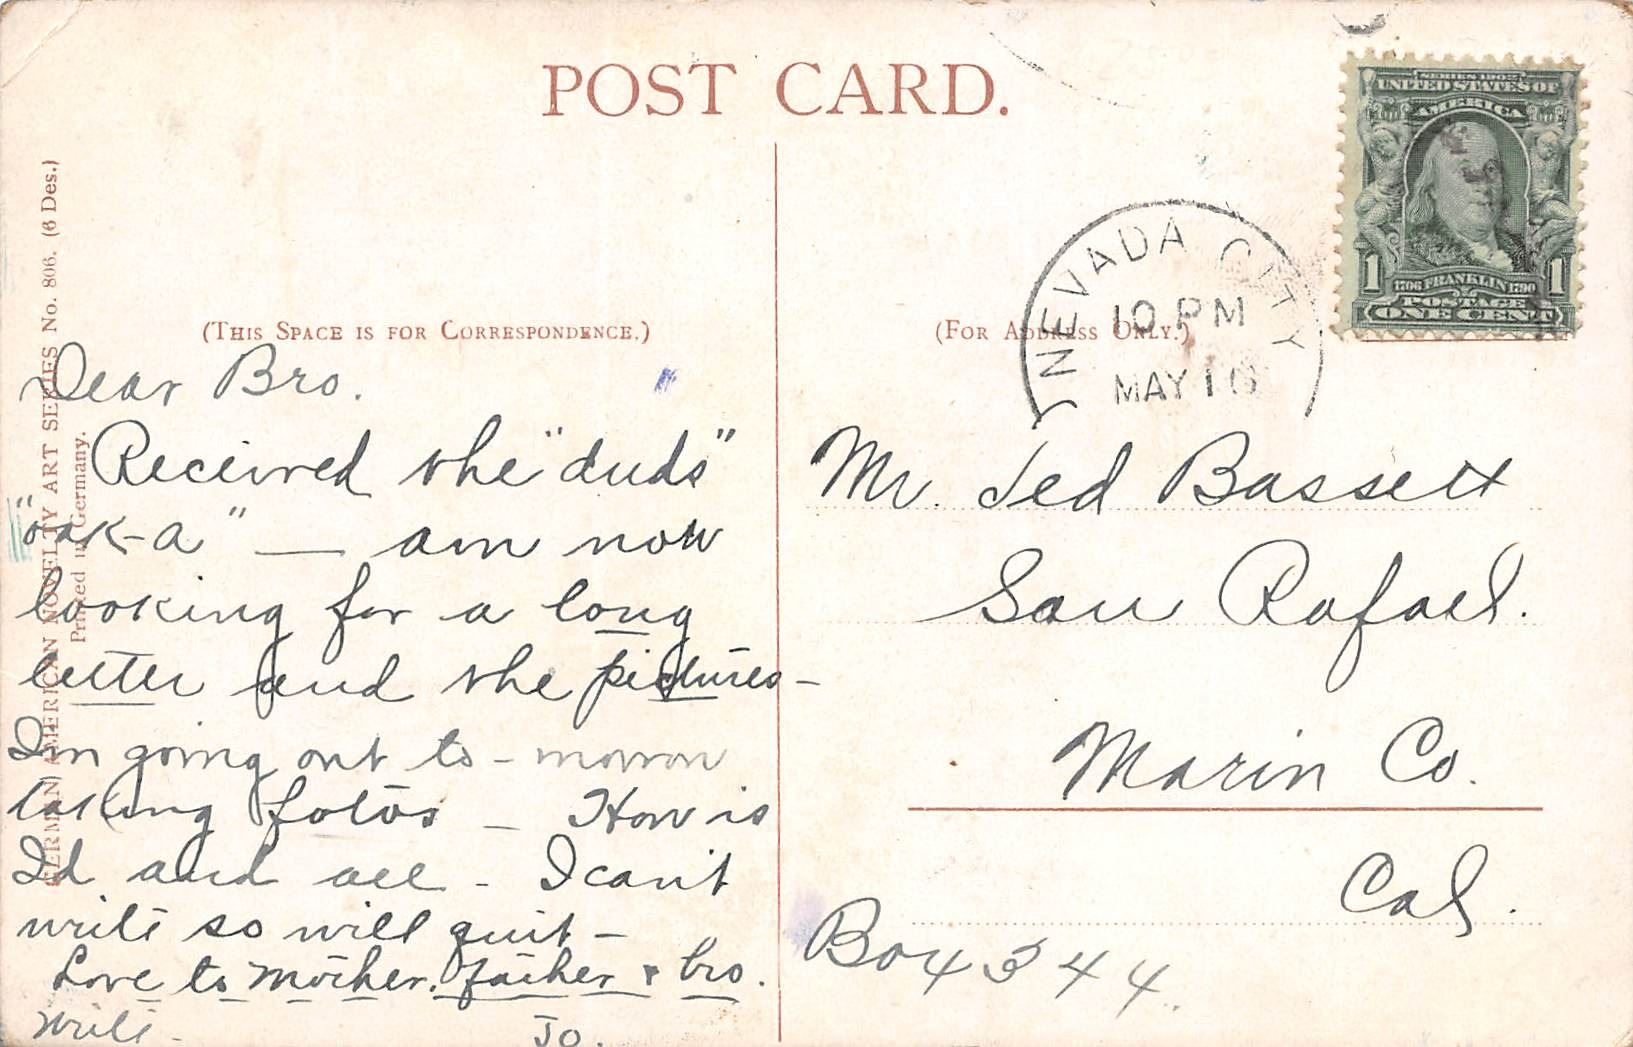 POST CARD.
SERIES 1902
UNITED STATES OF
AMERICA
1706 FRANKLIN 1790
1 1
POSTAGE
ONE CENT
NEVADA CITY
10 PM
MAY 16
(THIS SPACE IS FOR CORRESPONDENCE.)
(FOR ADDRESS ONLY.)
GERMAN AMERICAN NOVELTY ART SERIES No. 806. (6 Des.)
Printed in Germany.
Dear Bro.
Received the "duds"
"oak-a" — am now
looking for a long
letter and the pictures –
Im going out to - morrow
taking fotos – How is
Id and all – I can't
write so will quit –
Love to Mother, father & bro.
Write – Jo.
Mr. Ted Bassett
San Rafael.
Marin Co.
Cal.
Box 344.